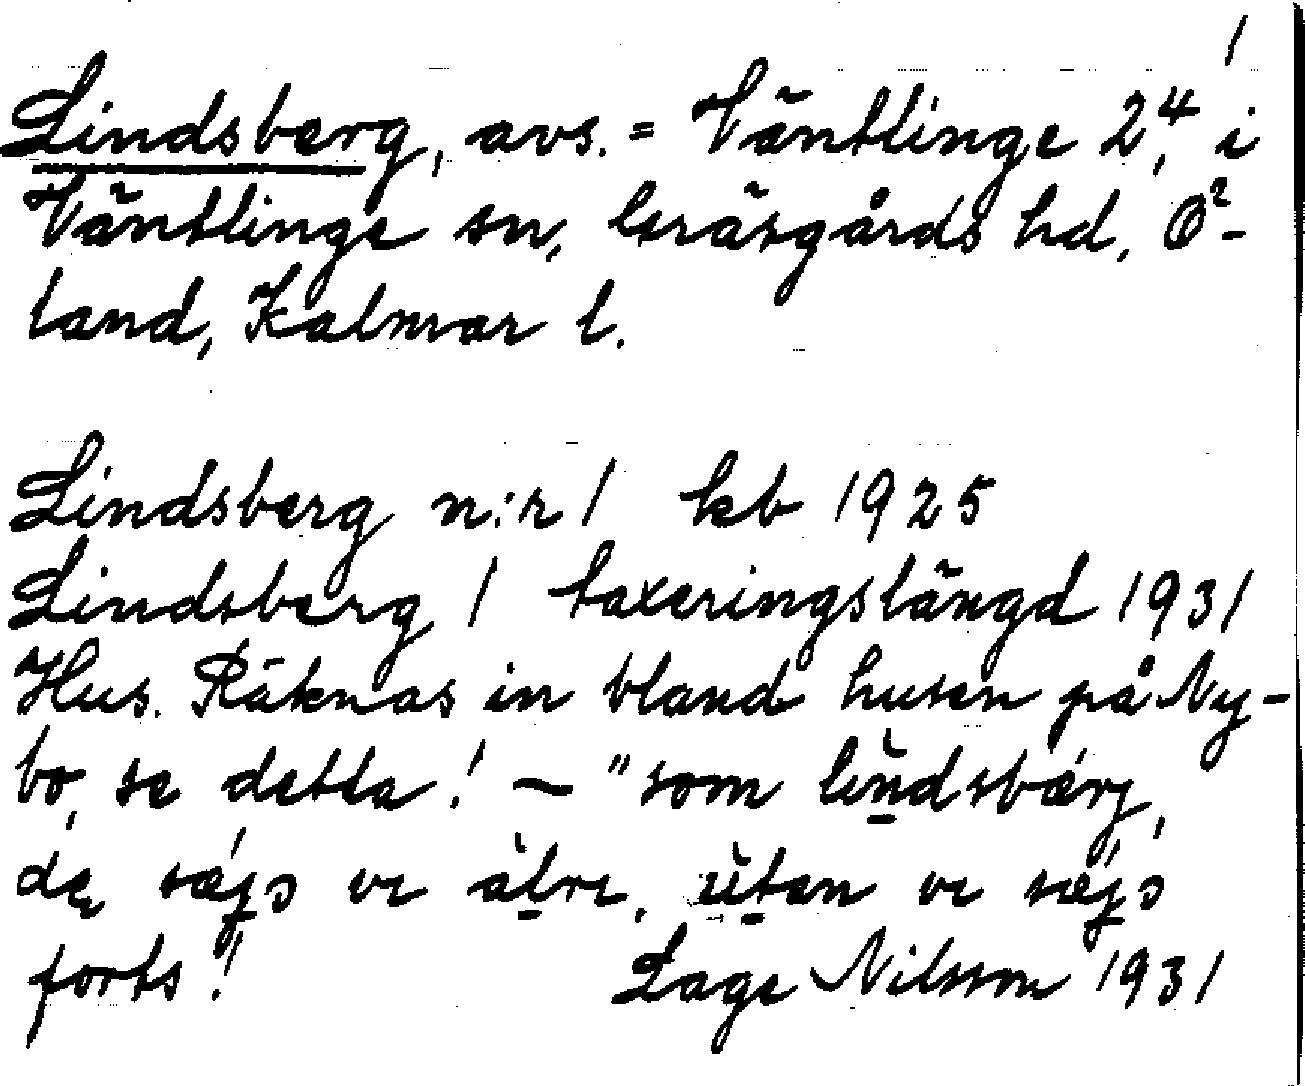 /
Lindsberg, avs. = Väntlinge 2⁴, i
Väntlinge sn, Gräsgårds hd, Ö-
land, Kalmar l.
Lindsberg n:r 1 kb 1925
Lindsberg 1 taxeringslängd 1931
Hus. Räknas in bland husen på Ny-
bo, se detta! — "som
ve uten ve
forts! Lage Nilsson 1931